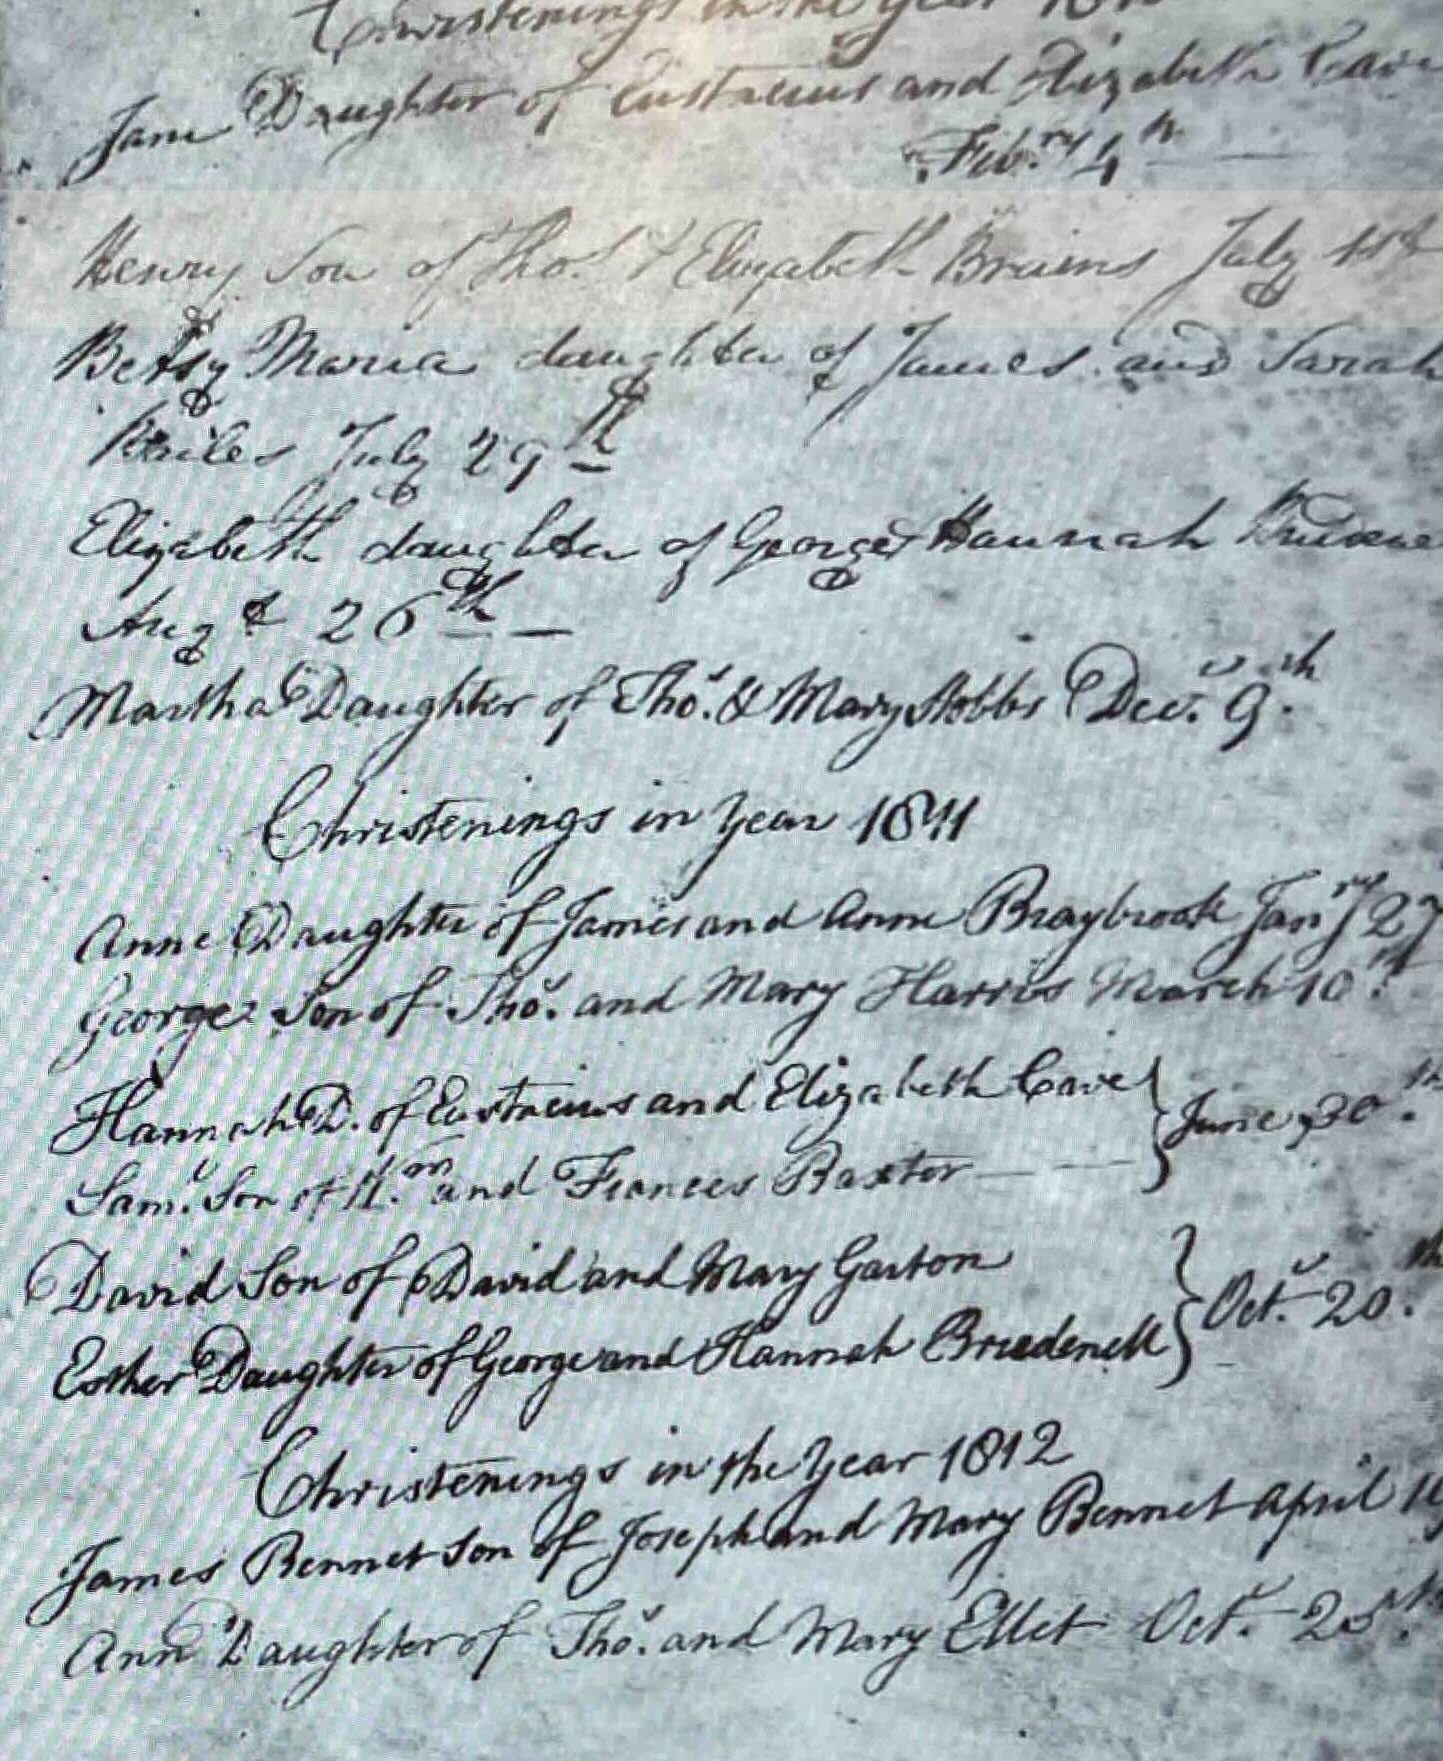 Christenings in the Year
Jane Daughter of Eustacius and Elizabeth Cave
Feb.ry 4th
Henry Son of Tho.s & Elizabeth Bruins July 1st
Betsy Maria daughter of James and Sarah
July 29th
Elizabeth daughter of George & Hannah
Augt 26th —
Martha Daughter of Tho.s & Mary Hobbs Decr. 9th.
Christenings in Year 1811
Anne Daughter of James and Anne Braybrook Janry 27
George Son of Tho.s and Mary Harris March 10th.
Hannah D. of Eustacius and Elizabeth Cave } June 30th.
Saml. Son of Wm. and Frances Baxter
David Son of David and Mary Garton } Octr. 20th.
Esther Daughter of George and Hannah Bruedenell
Christenings in the Year 1812
James Bennet Son of Joseph and Mary Bennet April
Ann Daughter of Tho.s and Mary Ellet Octr.